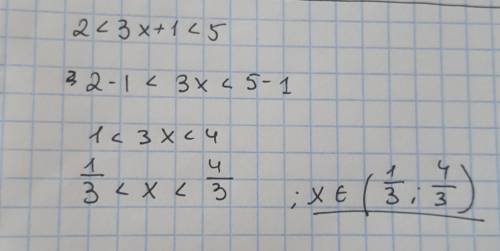 2 < 3x+1 < 5
2-1 < 3x < 5-1
1 < 3x < 4
1/3 < x < 4/3 ; x ∈ (1/3 ; 4/3)